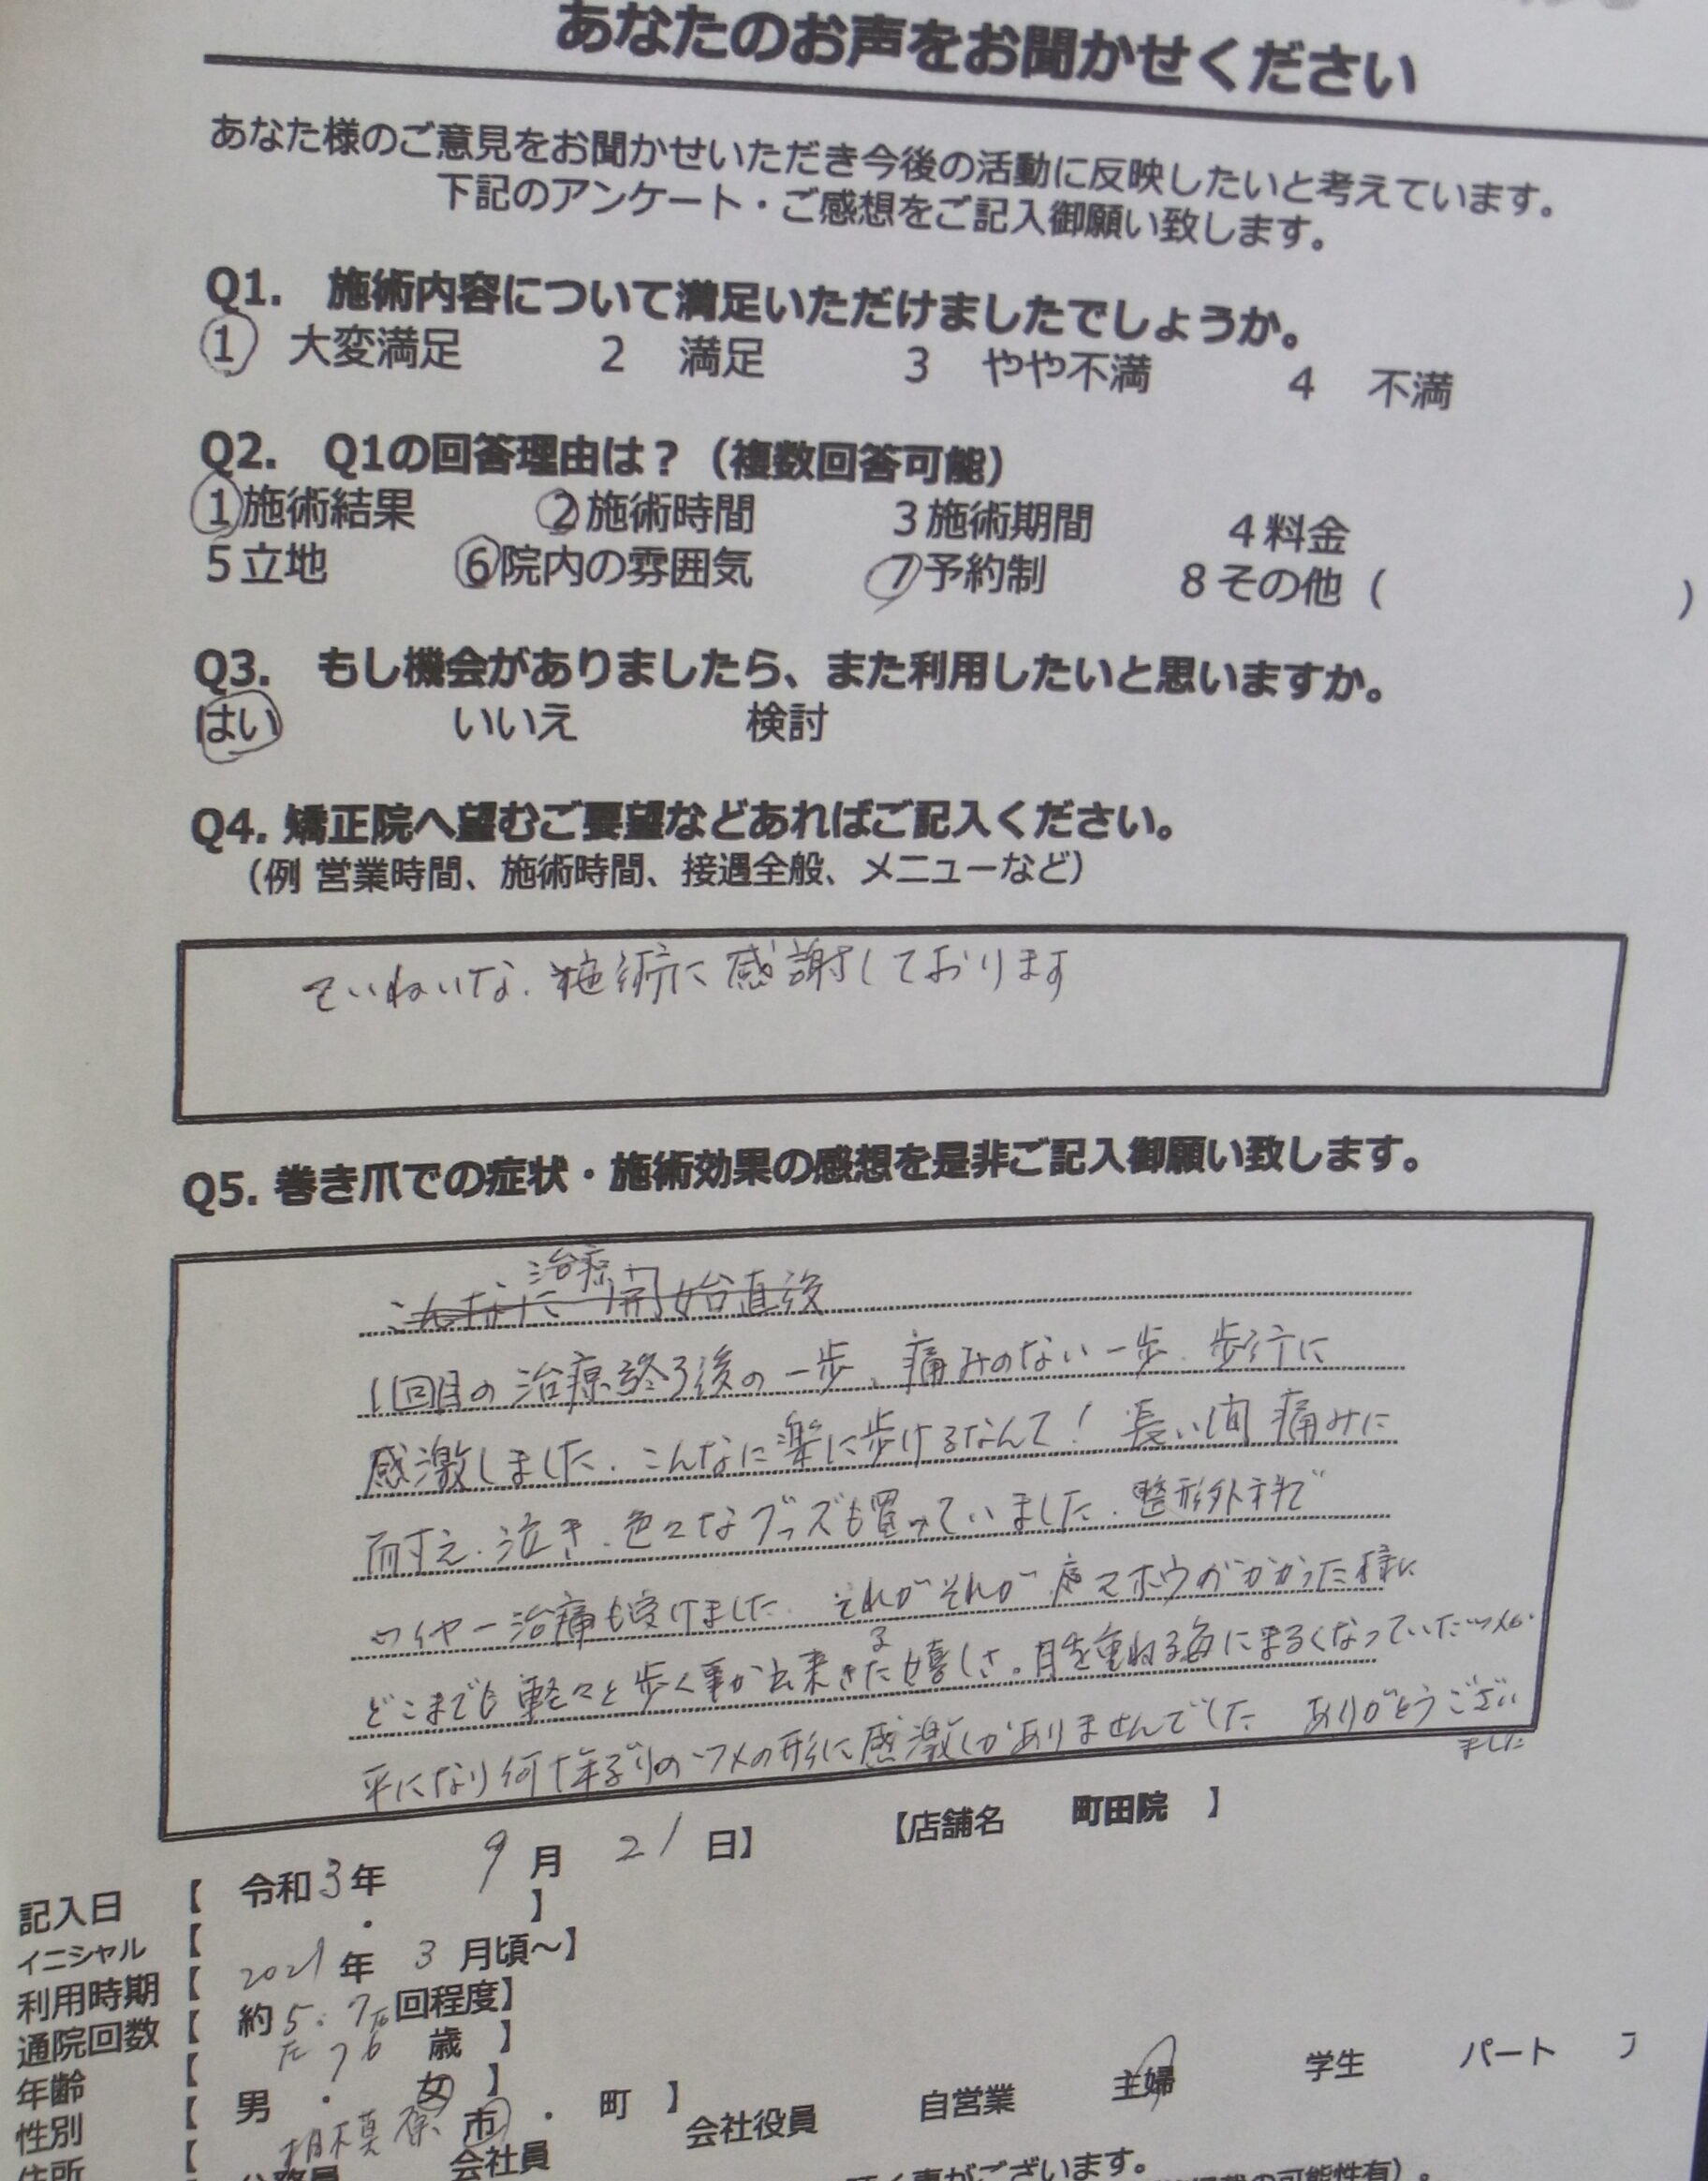 あなたのお声をお聞かせください
あなた様のご意見をお聞かせいただき今後の活動に反映したいと考えています。
下記のアンケート・ご感想をご記入御願い致します。
Q1. 施術内容について満足いただけましたでしょうか。
1 大変満足 2 満足 3 やや不満 4 不満
Q2. Q1の回答理由は？（複数回答可能）
1施術結果 2施術時間 3施術期間 4料金
5立地 6院内の雰囲気 7予約制 8その他（ ）
Q3. もし機会がありましたら、また利用したいと思いますか。
はい いいえ 検討
Q4. 矯正院へ望むご要望などあればご記入ください。
（例 営業時間、施術時間、接遇全般、メニューなど）
ていねいな、施術に感謝しております
Q5. 巻き爪での症状・施術効果の感想を是非ご記入御願い致します。
治療
こんなに 開始直後
1回目の治療終了後の一歩、痛みのない一歩、歩行に
感激しました、こんなに楽に歩けるなんて！ 長い間 痛みに
耐え、泣き、色々なグッズも買っていました、整形外科で
ワイヤー治療も受けました、それがそれが 魔マホウがかかった様に
どこまでも軽々と歩く事が出来きる嬉しさ。月を重ねる毎にまるくなっていたツメが
平になり何十年ぶりのツメの形に感激しかありませんでした ありがとうござい
ました
記入日 【 令和3年 9月 21日】 【店舗名 町田院 】
イニシャル 【 ・ 】
利用時期 【 2021年 3月頃～】
通院回数 【 約5. 7 回程度】
年齢 【 76 歳 】
性別 【 男 ・ 女 】
住所 【 相模原 市 ・ 町 】
公務員 会社員 会社役員 自営業 主婦 学生 パート
事がございます。
の可能性有）。